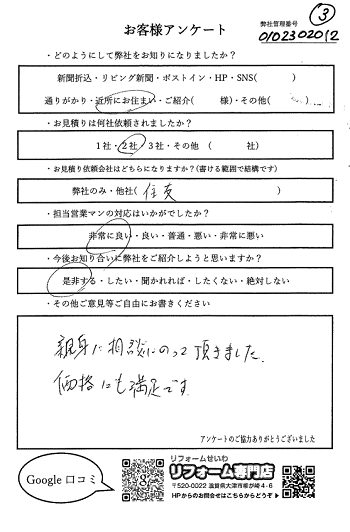 お客様アンケート
弊社管理番号
③
0102302012
・どのようにして弊社をお知りになりましたか？
新聞折込・リビング新聞・ポストイン・HP・SNS(　　　)
通りがかり・近所にお住まい・ご紹介(　　　様)・その他(　　　)
・お見積りは何社依頼されましたか？
1社・2社・3社・その他（　　　社）
・お見積り依頼会社はどちらになりますか？(書ける範囲で結構です)
弊社のみ・他社(　住友　)
・担当営業マンの対応はいかがでしたか？
非常に良い・良い・普通・悪い・非常に悪い
・今後お知り合いに弊社をご紹介しようと思いますか？
是非する・したい・聞かれれば・したくない・絶対しない
・その他ご意見等ご自由にお書きください
親身に相談にのって頂きました。
価格にも満足です。
アンケートのご協力ありがとうございました
Google 口コミ
リフォームせいわ
リフォーム専門店
〒520-0022 滋賀県大津市柳が崎4-6
HPからのお問合せはこちらからどうぞ▶